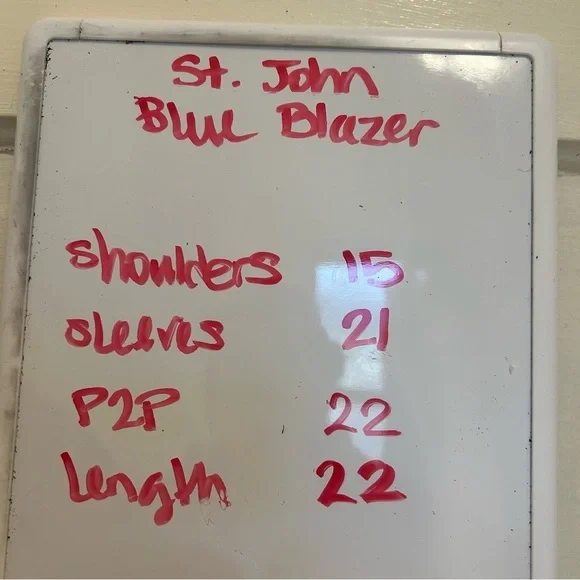 St. John
Blue Blazer
shoulders 15
sleeves 21
P2P 22
Length 22